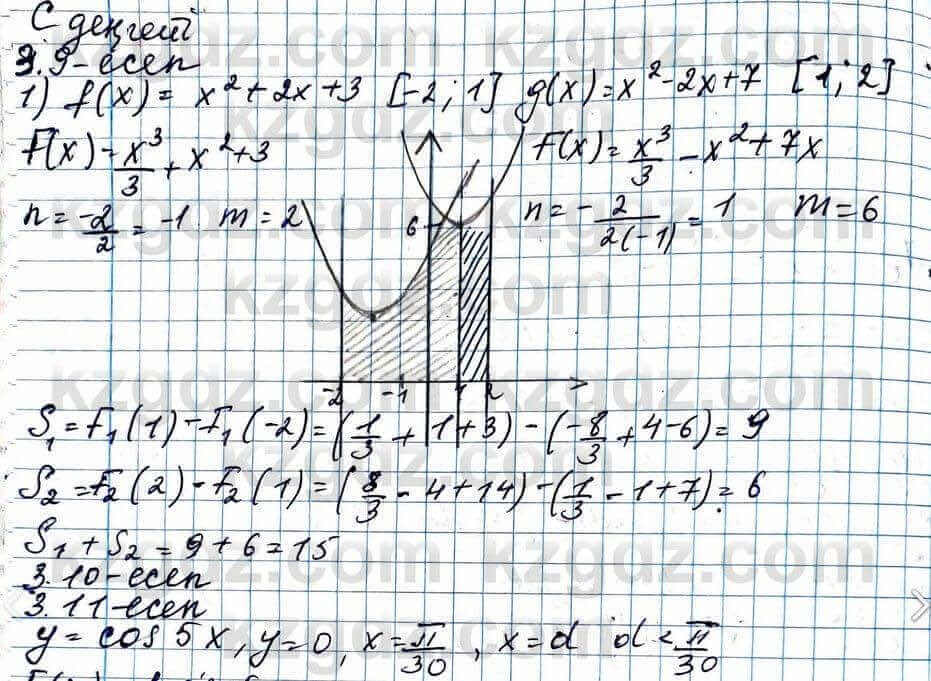 С деңгей
3.9-есеп
1) f(x) = x² + 2x + 3 [-2; 1] g(x) = x² - 2x + 7 [1; 2]
F(x) = x³/3 + x² + 3 F(x) = x³/3 - x² + 7x
n = -2/2 = -1 m = 2 n = - 2/2(-1) = 1 m = 6
6
-2 -1 1 2
S₁ = F₁(1) - F₁(-2) = (1/3 + 1 + 3) - (-8/3 + 4 - 6) = 9
S₂ = F₂(2) - F₂(1) = (8/3 - 4 + 14) - (1/3 - 1 + 7) = 6
S₁ + S₂ = 9 + 6 = 15
3.10-есеп
3.11-есеп
y = cos 5x, y = 0, x = π/30, x = d d < π/30
kzgdz.com